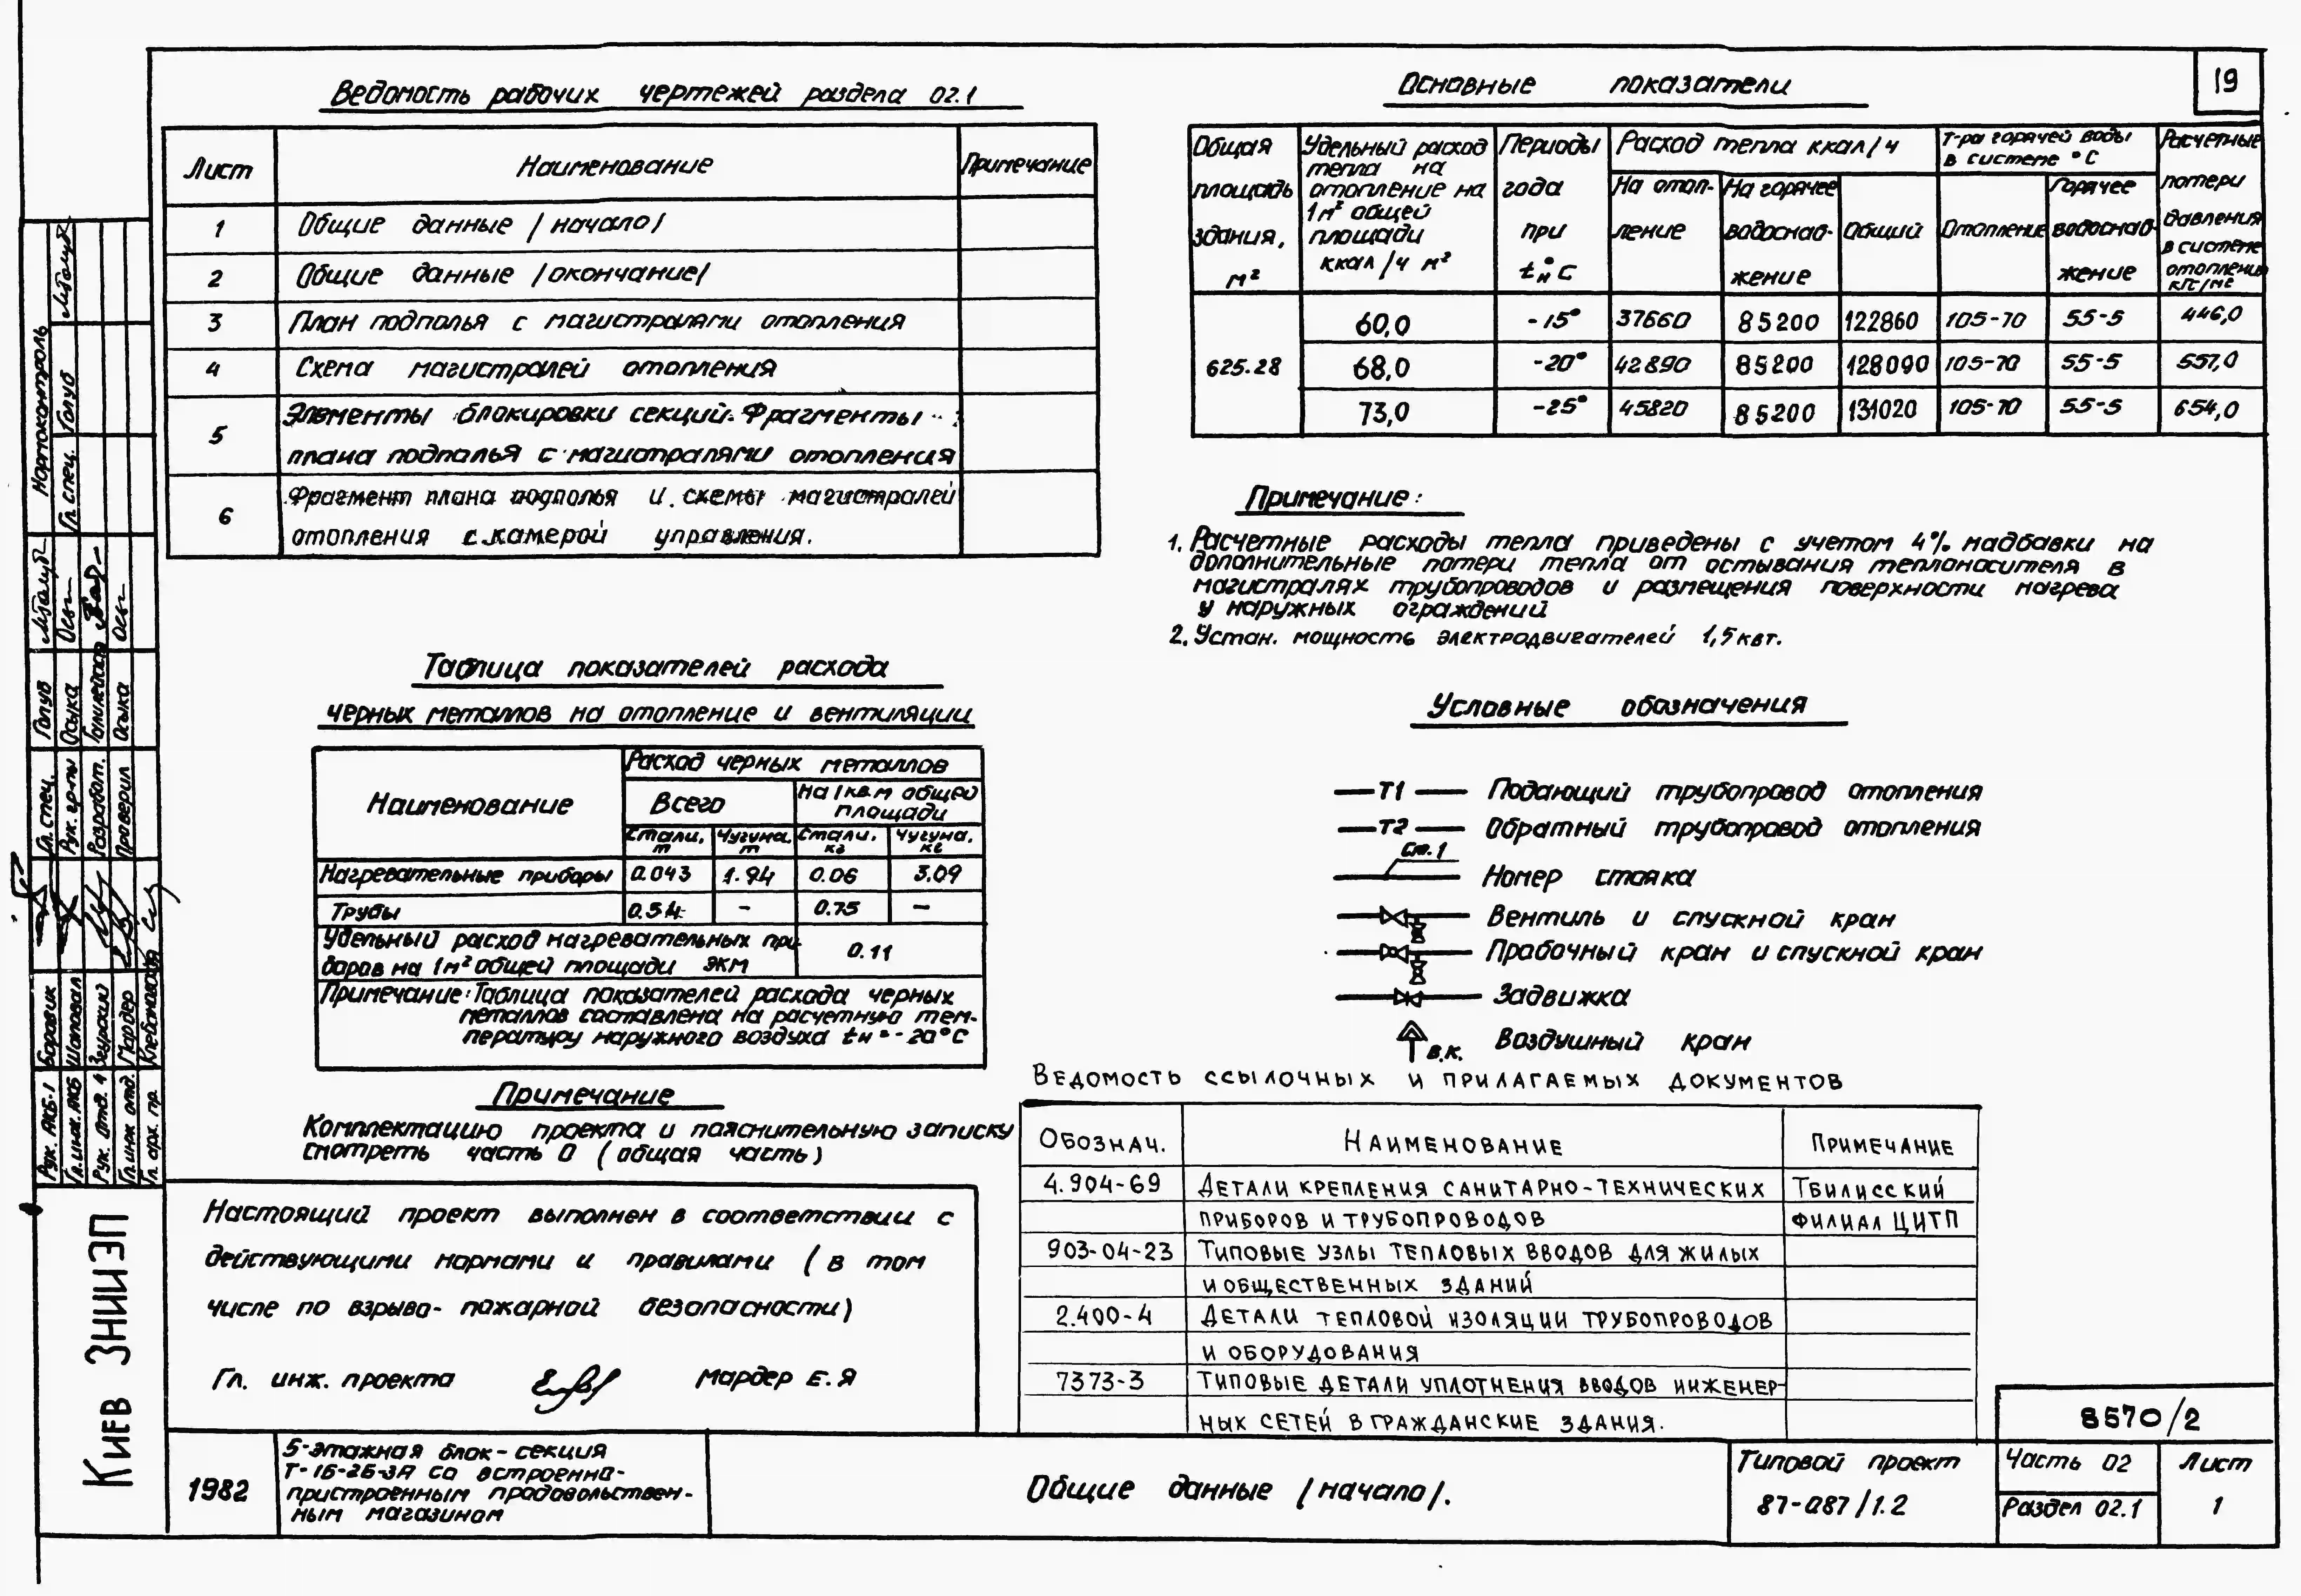 19
Ведомость рабочих чертежей раздела 02.1
Лист Наименование Примечание
1 Общие данные /начало/
2 Общие данные /окончание/
3 План подполья с магистралями отопления
4 Схема магистралей отопления
5 Элементы блокировки секций. Фрагменты
плана подполья с магистралями отопления
6 Фрагмент плана подполья и схемы магистралей
отопления с камерой управления.
Основные показатели
Общая площадь здания, м²
Удельный расход тепла на отопление на 1м² общей площади ккал/ч м²
Периоды года при tн°С
Расход тепла ккал/ч
На отопление
На горячее водоснабжение
Общий
Т-ра горячей воды в системе °С
Отопление
Горячее водоснабжение
Расчетные потери давления в системе отопления кгс/м2
625.28
60,0 -15° 37660 85200 122860 105-70 55-5 446,0
68,0 -20° 42890 85200 128090 105-70 55-5 557,0
73,0 -25° 45820 85200 131020 105-70 55-5 654,0
Примечание:
1. Расчетные расходы тепла приведены с учетом 4% надбавки на
дополнительные потери тепла от остывания теплоносителя в
магистралях трубопроводов и размещения поверхности нагрева
у наружных ограждений
2. Устан. мощность электродвигателей 1,5квт.
Таблица показателей расхода
черных металлов на отопление и вентиляции
Наименование
Расход черных металлов
Всего
На 1кв.м общей площади
Стали, т Чугуна, т Стали, кг Чугуна, кг
Нагревательные приборы 0.043 1.94 0.06 3.09
Трубы 0.54 – 0.75 –
Удельный расход нагревательных при-
боров на 1м² общей площади экм 0.11
Примечание: Таблица показателей расхода черных
металлов составлена на расчетную тем-
пературу наружного воздуха tн = -20°С
Условные обозначения
Т1 Подающий трубопровод отопления
Т2 Обратный трубопровод отопления
Ст.1 Номер стояка
Вентиль и спускной кран
Пробочный кран и спускной кран
Задвижка
В.К. Воздушный кран
Примечание
Комплектацию проекта и пояснительную записку
смотреть часть 0 (общая часть)
Ведомость ссылочных и прилагаемых документов
Обознач. Наименование Примечание
4.904-69 Детали крепления санитарно-технических Тбилисский
приборов и трубопроводов филиал ЦИТП
903-04-23 Типовые узлы тепловых вводов для жилых
и общественных зданий
2.400-4 Детали тепловой изоляции трубопроводов
и оборудования
7373-3 Типовые детали уплотнения вводов инженер-
ных сетей в гражданские здания.
Настоящий проект выполнен в соответствии с
действующими нормами и правилами (в том
числе по взрыво- пожарной безопасности)
Гл. инж. проекта Мардер Е.Я
Нормоконтроль
Гл спец. Голуб
Гл. спец. Голуб
Рук. гр-пы Осыка
Разработ.
Проверил Осыка
Рук. АКБ-1 Боровик
Гл.инж. АКБ Шаповал
Рук. отд. 4
Гл.инж отд. Мардер
Гл. арх. пр.
Киев ЗНИИЭП
1982
5-этажная блок-секция
Т-1Б-2Б-3А со встроенно-
пристроенным продовольствен-
ным магазином
Общие данные /начало/.
8570/2
Типовой проект
87-087/1.2
Часть 02
Раздел 02.1
Лист
1